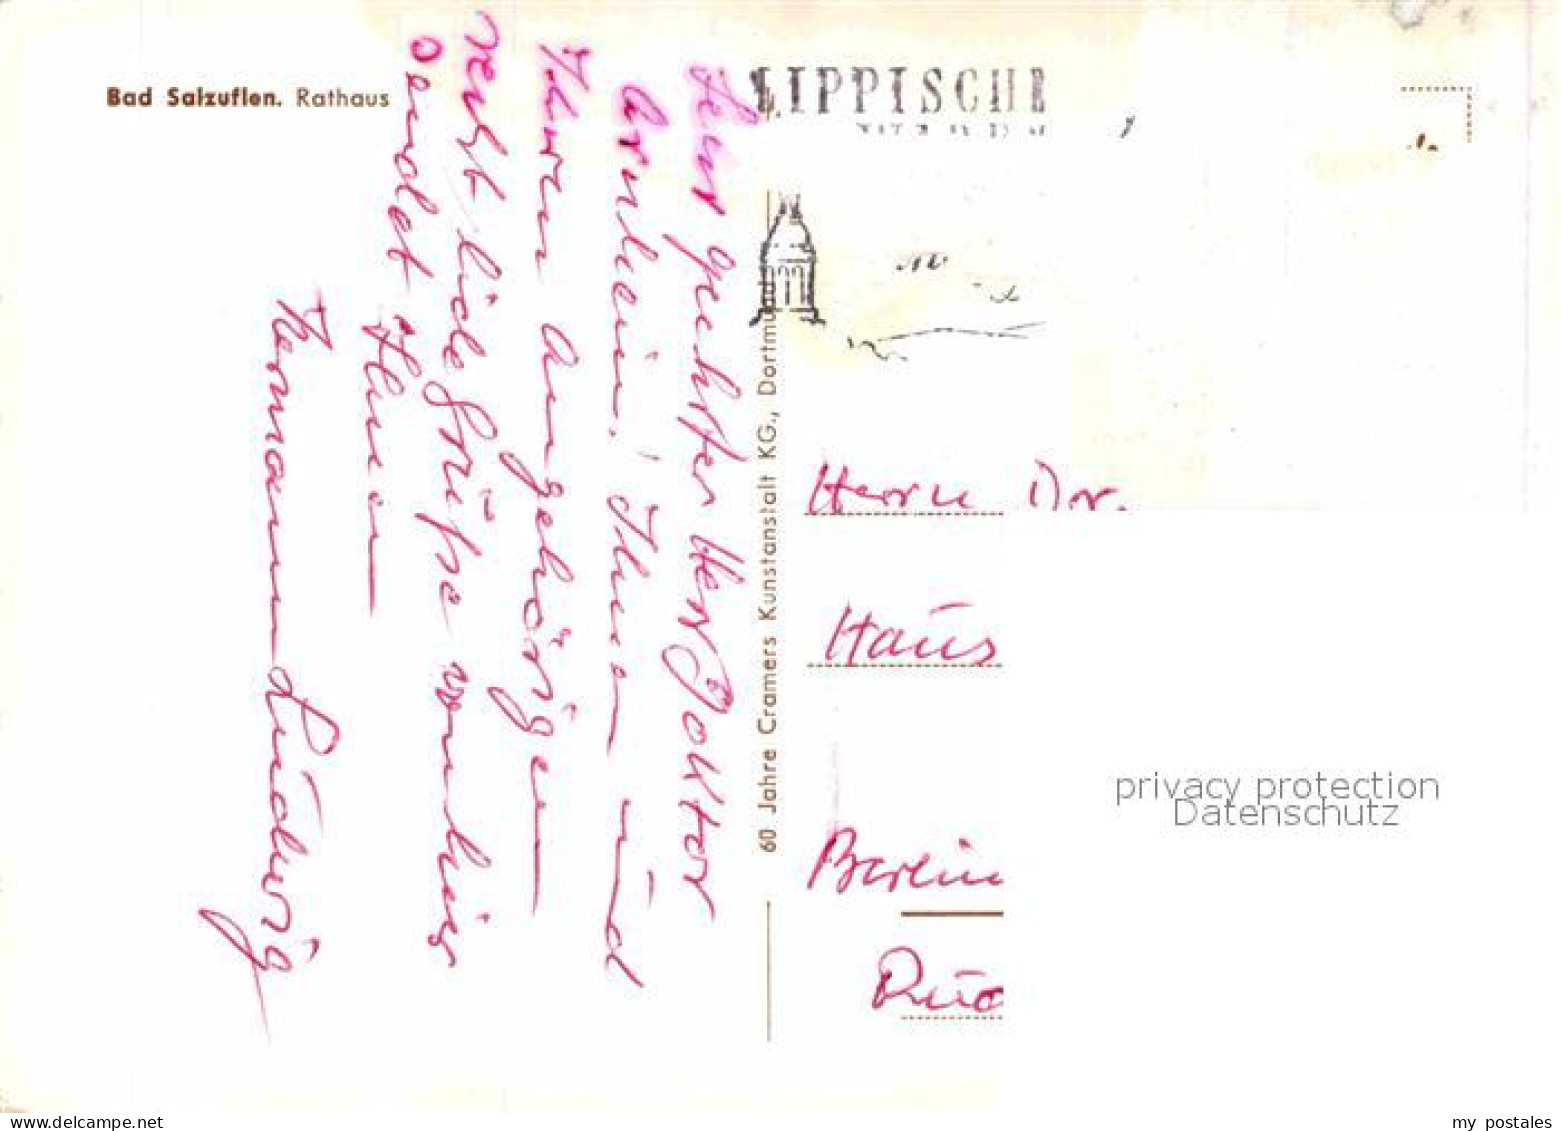 Bad Salzuflen. Rathaus
LIPPISCHE
Sehr geehrter Herr Doktor
Ihnen und
Ihren Angehörigen
recht liebe Grüße von hier
sendet Ihnen
Hermann Ludwig
60 Jahre Cramers Kunstanstalt KG., Dortmund
Herrn Dr.
Haus
Berlin
privacy protection
Datenschutz
my postales